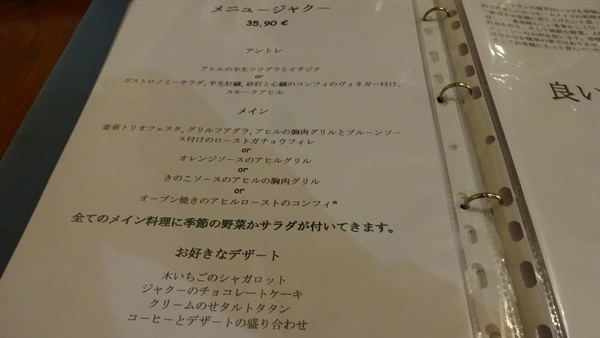 メニュージャクー
35,90 €
アントレ
アヒルの半生フワグラとイチジク
or
ガストロノミーサラダ, 半生肝臓, 砂肝と心臓のコンフィのヴィネガー付け,
スモークアヒル
メイン
豪華トリオフェスタ, グリルフアグラ, アヒルの胸肉グリルとプルーンソー
ス付けのローストガチョウフィレ
or
オレンジソースのアヒルグリル
or
きのこソースのアヒルの胸肉グリル
or
オーブン焼きのアヒルローストのコンフィ*
全てのメイン料理に季節の野菜かサラダが付いてきます。
お好きなデザート
木いちごのシャガロット
ジャクーのチョコレートケーキ
クリームのせタルトタタン
コーヒーとデザートの盛り合わせ
良い